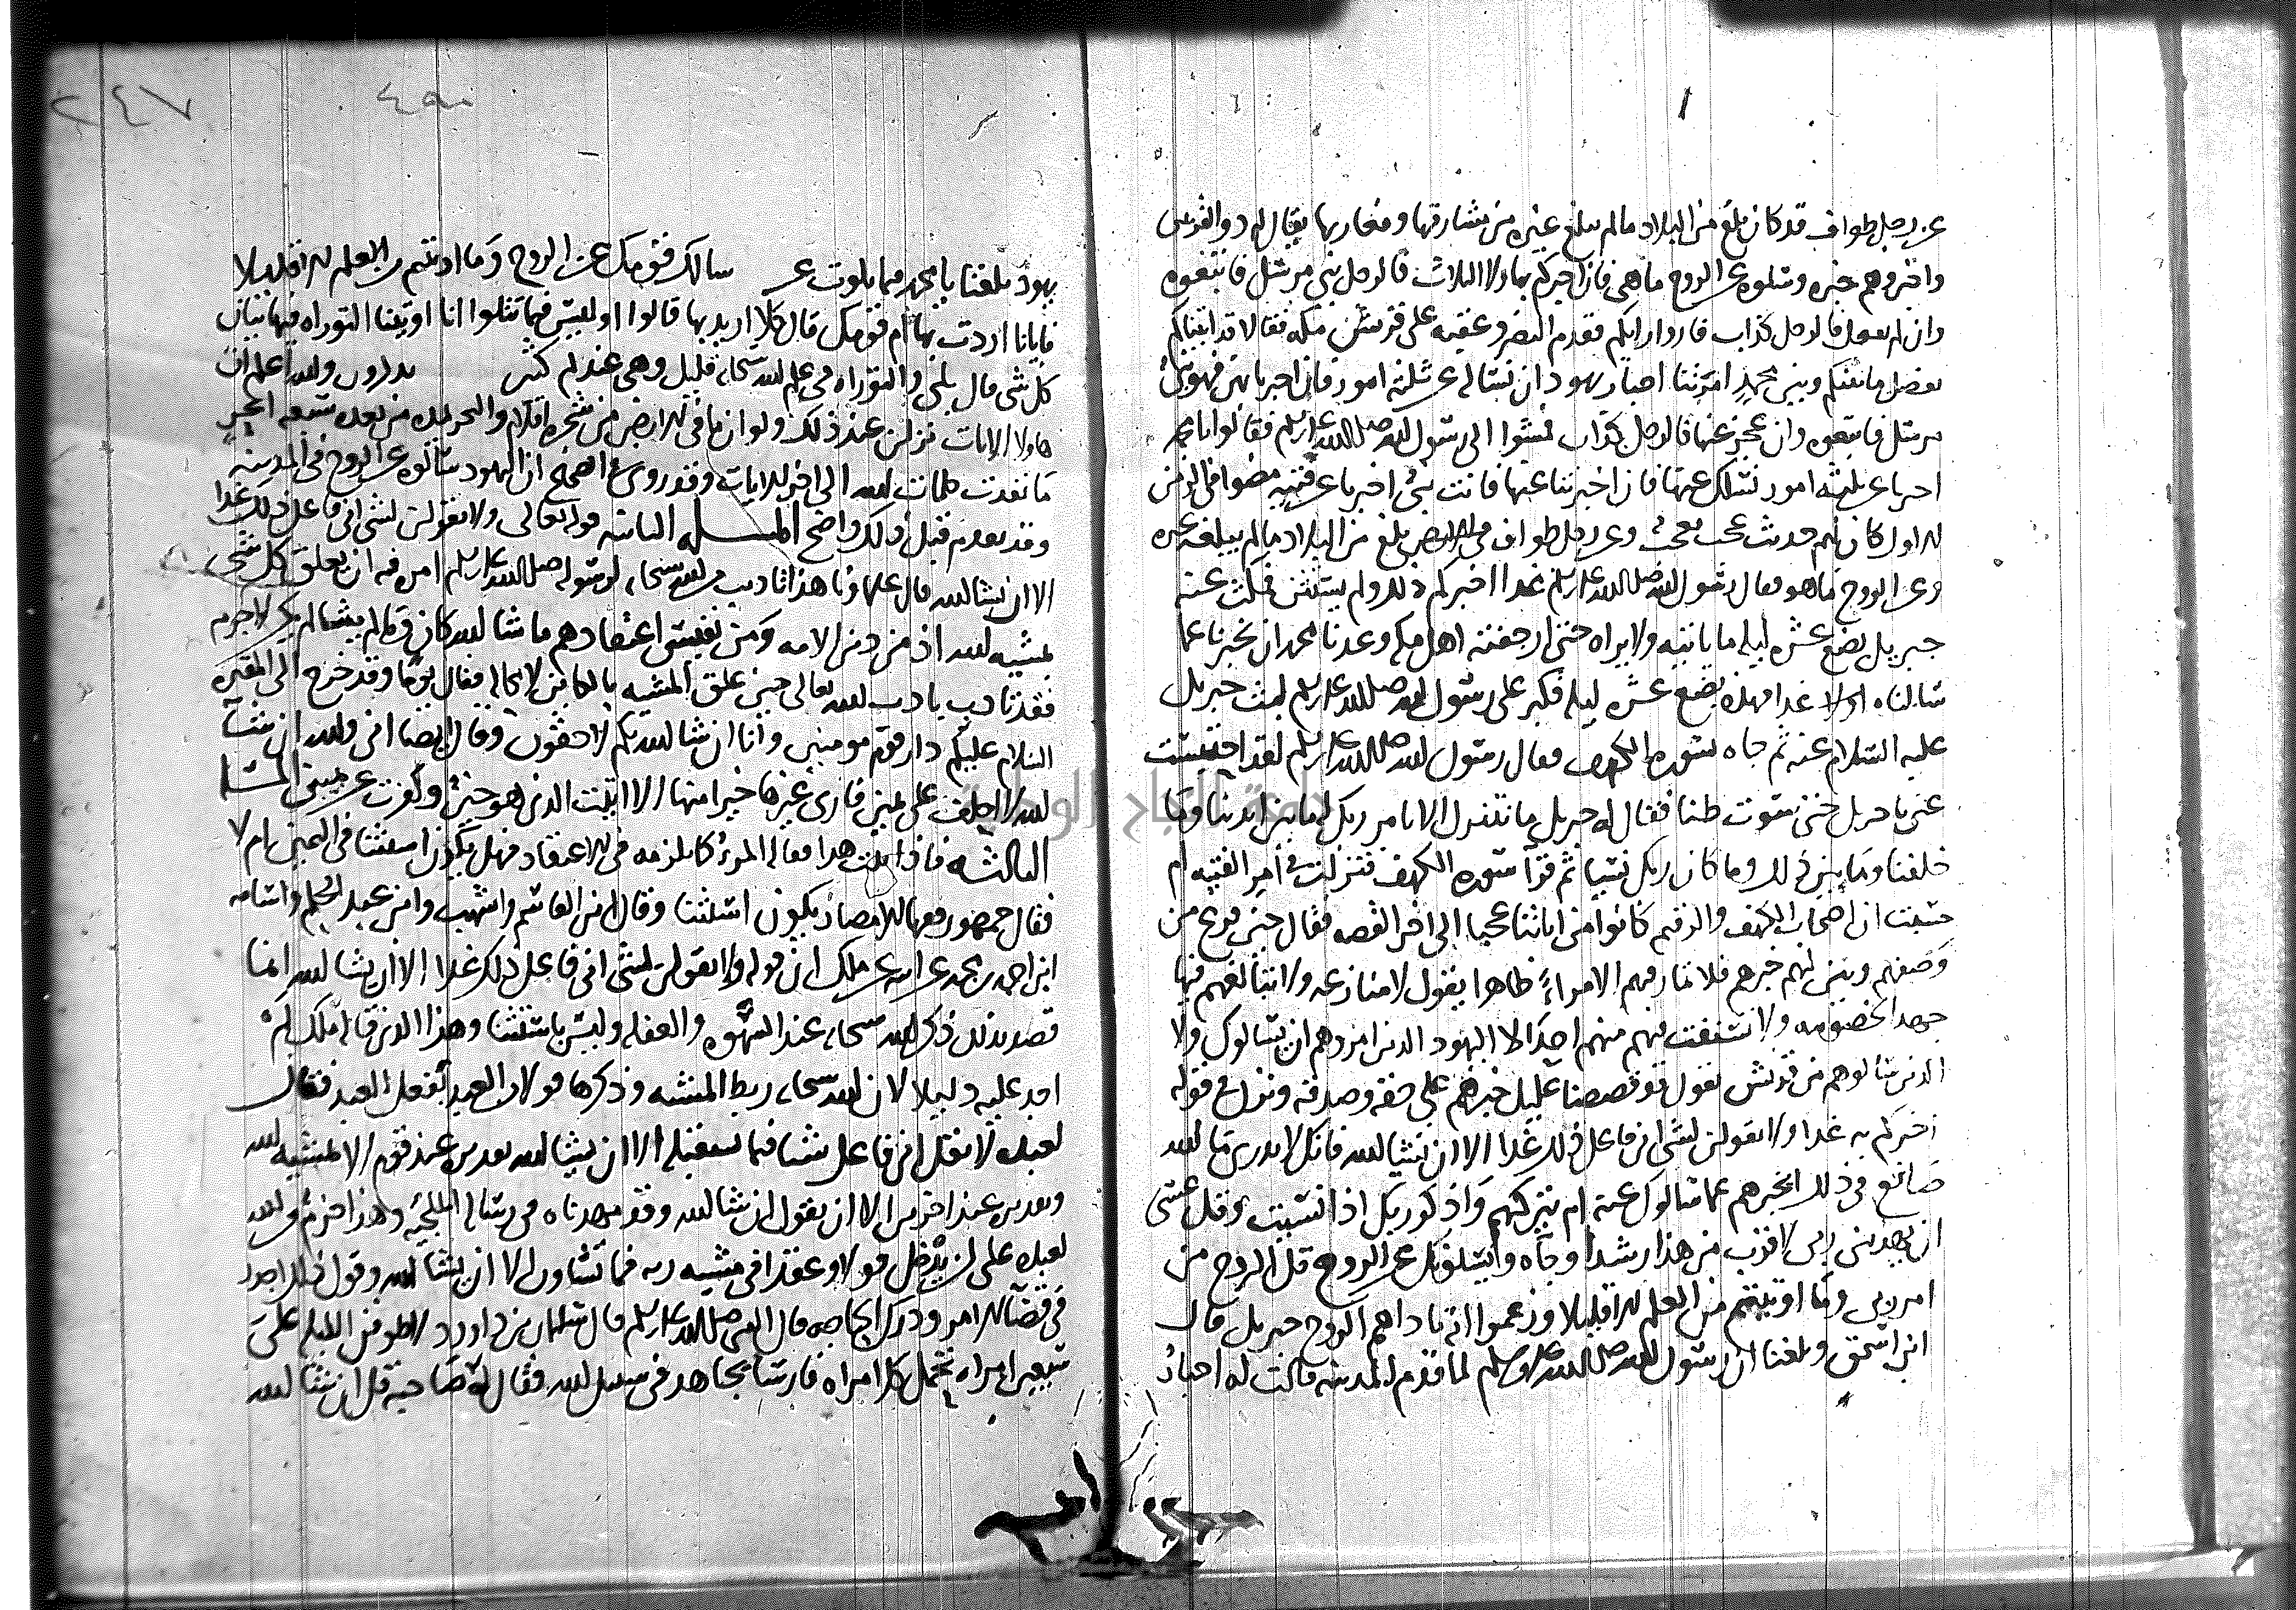 عن رجل طواف قد كان بلغ من البلاد ما لم يبلغ غيره من مشارقها ومغاربها يقال له ذو القرنين
واخبروهم خبره وسلوه عن الروح ما هي فان اخبركم بهاولا الثلاث فالرجل نبي مرسل فاتبعوه
وان لم يفعل فالرجل كذاب فاروا رايكم فقدم النضر وعقبه على قريش مكه فقالا قد اتيناكم
بفصل ما بينكم وبين محمد امرتنا احبار يهود ان نساله عن ثلثه امور فان اخبرنا بهن فهو نبي
مرسل فاتبعوه وان عجز عنها فالرجل كذاب فمشوا الى رسول الله صلى الله عليه وسلم فقالوا يا محمد
اخبرنا عن ثلثه امور نسلك عنها فان اخبرتنا عنها فانت نبي اخبرنا عن فتيه مضوا في الزمن
الاول كان لهم حديث عجب معجب وعن رجل طواف في الارض بلغ من البلاد ما لم يبلغه غيره
وعن الروح ما هو فقال رسول الله صلى الله عليه وسلم غدا اخبركم بذلك ولم يستثن فمكث عنه
جبريل بضع عشره ليله ما ياتيه ولا يراه حتى ارجفت اهل مكه وعدنا محمد ان يخبرنا عما
سالناه اولا غدا فهذه بضع عشره ليله فكبر على رسول الله صلى الله عليه وسلم لبث جبريل
عليه السلام عنه ثم جاه بسوره الكهف فقال رسول الله صلى الله عليه وسلم لقد احتبست
عني يا جبريل حتى سوت ظنا فقال له جبريل ما نتنزل الا بامر ربك له ما بين ايدينا وما
خلفنا وما بين ذلك وما كان ربك نسيا ثم قرا سوره الكهف فنزلت في امر الفتيه ام
حسبت ان اصحاب الكهف والرقيم كانوا من اياتنا عجبا الى اخر القصه فقال حين فرغ من
وصفهم وبين لهم خبرهم فلا تمار فيهم الا مراء ظاهرا يقول لا منازعه ولا تبالغهم فيها
جهد الخصومه ولا تستفت فيهم منهم احدا لا اليهود الذين امروهم ان يسالوك ولا
الذين سالوهم من قريش يقول قد قصصنا عليك خبرهم على حقه وصدقه ونزل في قوله
اخبركم به غدا ولا تقولن لشي اني فاعل ذلك غدا الا ان يشا الله فانك لا تدري ما الله
صانع في ذلك ايخبرهم عما سالوك عنه ام يتركهم واذكر ربك اذا نسيت وقل عسى
ان يهديني ربي لاقرب من هذا رشدا وجاه ويسلونك عن الروح قل الروح من
امر ربي وما اوتيتم من العلم الا قليلا وزعموا انه ناداهم الروح جبريل قال
ابن اسحق وبلغنا ان رسول الله صلى الله عليه وسلم لما قدم المدينه قالت له احبار
٢٤٧
يهود بلغنا يا محمد فيما تلوت عن سالك قومك عن الروح وما اوتيتم من العلم الا قليلا
فايانا اردت بها ام قومك قال كلا اريد بها قالوا اوليس فيما تتلوا انا اوتينا التوراه فيها تبيان
كل شي قال بلى والتوراه في علم الله سبحانه قليل وهي عندكم كثير والله اعلم ان
هاولا الايات نزلن عند ذلك ولو ان ما في الارض من شجره اقلام والبحر يمده من بعده سبعه ابحر
ما نفدت كلمات الله الى اخر الايات وقد روي في الصحيح ان اليهود سالوه عن الروح في المدينه
وقد تقدم قبل ذلك واضح المسله الثانيه قوله تعالى ولا تقولن لشي اني فاعل ذلك غدا
الا ان يشا الله قال علماونا هذا تاديب من الله سبحانه لرسوله صلى الله عليه وسلم امره فيه ان يعلق كل شي
بمشيه الله اذ من دين الامه ومن نفيس اعتقادهم ما شا الله كان وما لم يشا لم يكن لا جرم
فقد تادب بادب الله تعالى حين علق المشيه بالكاين لا محاله فقال يوما وقد خرج الى المقبره
السلام عليكم دار قوم مومنين وانا ان شا الله بكم لاحقون وقال ايضا اني والله ان شا
الله لا احلف على يمين فارى غيرها خيرا منها الا اتيت الذي هو خير وكفرت عن يميني المسله
الثالثه فاذا ثبت هذا فقاله المرء كما يلزمه في الاعتقاد فهل يكون استثنا في اليمين ام لا
فقال جمهور فقها الامصار يكون استثنا وقال ابن القاسم واشهب وابن عبد الحكم واسامه
ابن احمد بن محمد عن ابيه عن ملك ان قوله ولا تقولن لشي اني فاعل ذلك غدا الا ان يشا الله انما
قصد بذلك ذكر الله سبحانه عند السهو والغفله وليس باستثنا وهذا الذي قاله ملك لم
اجد عليه دليلا لان الله سبحانه ربط المشيه وذكرها قولا من العبد لفعل العبد فقال
لعبده لا تقل اني فاعل شيا فيما تستقبله الا ان يشا الله تقديره عند قوم الا بمشيه الله
وتقديره عند اخرين الا ان تقول ان شا الله وقد مهدناه في رساله الملجئه وهذا اخر في الله
لعبده على ان يدخل قولا وعقدا في مشيه ربه فما تشاون الا ان يشا الله وقول ذلك اجدر
في قضا الامر ودرك الحاجه قال النبي صلى الله عليه وسلم قال سليمان بن داود لاطوفن الليله على
سبعين امراه تحمل كل امراه فارسا يجاهد في سبيل الله فقال له صاحبه قل ان شا الله